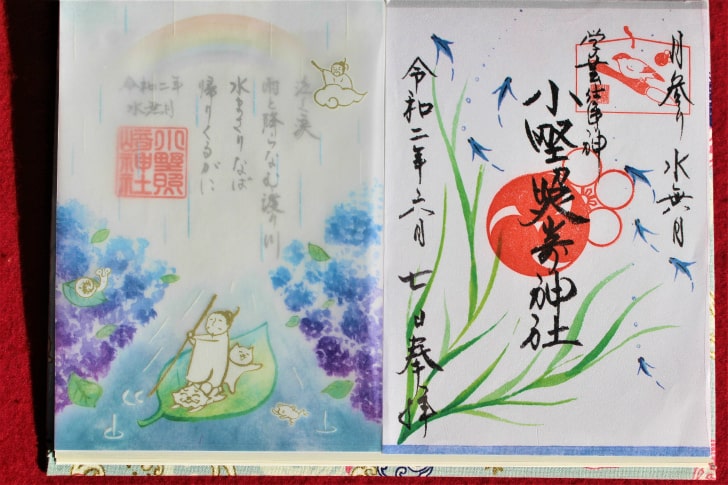 月参り 水無月
学芸仕事神
小野照崎神社
令和二年六月七日奉拝
泣く涙
雨と降らなむ渡り川
水まさりなば
帰りくるがに
令和二年
水無月
小野照
崎神社